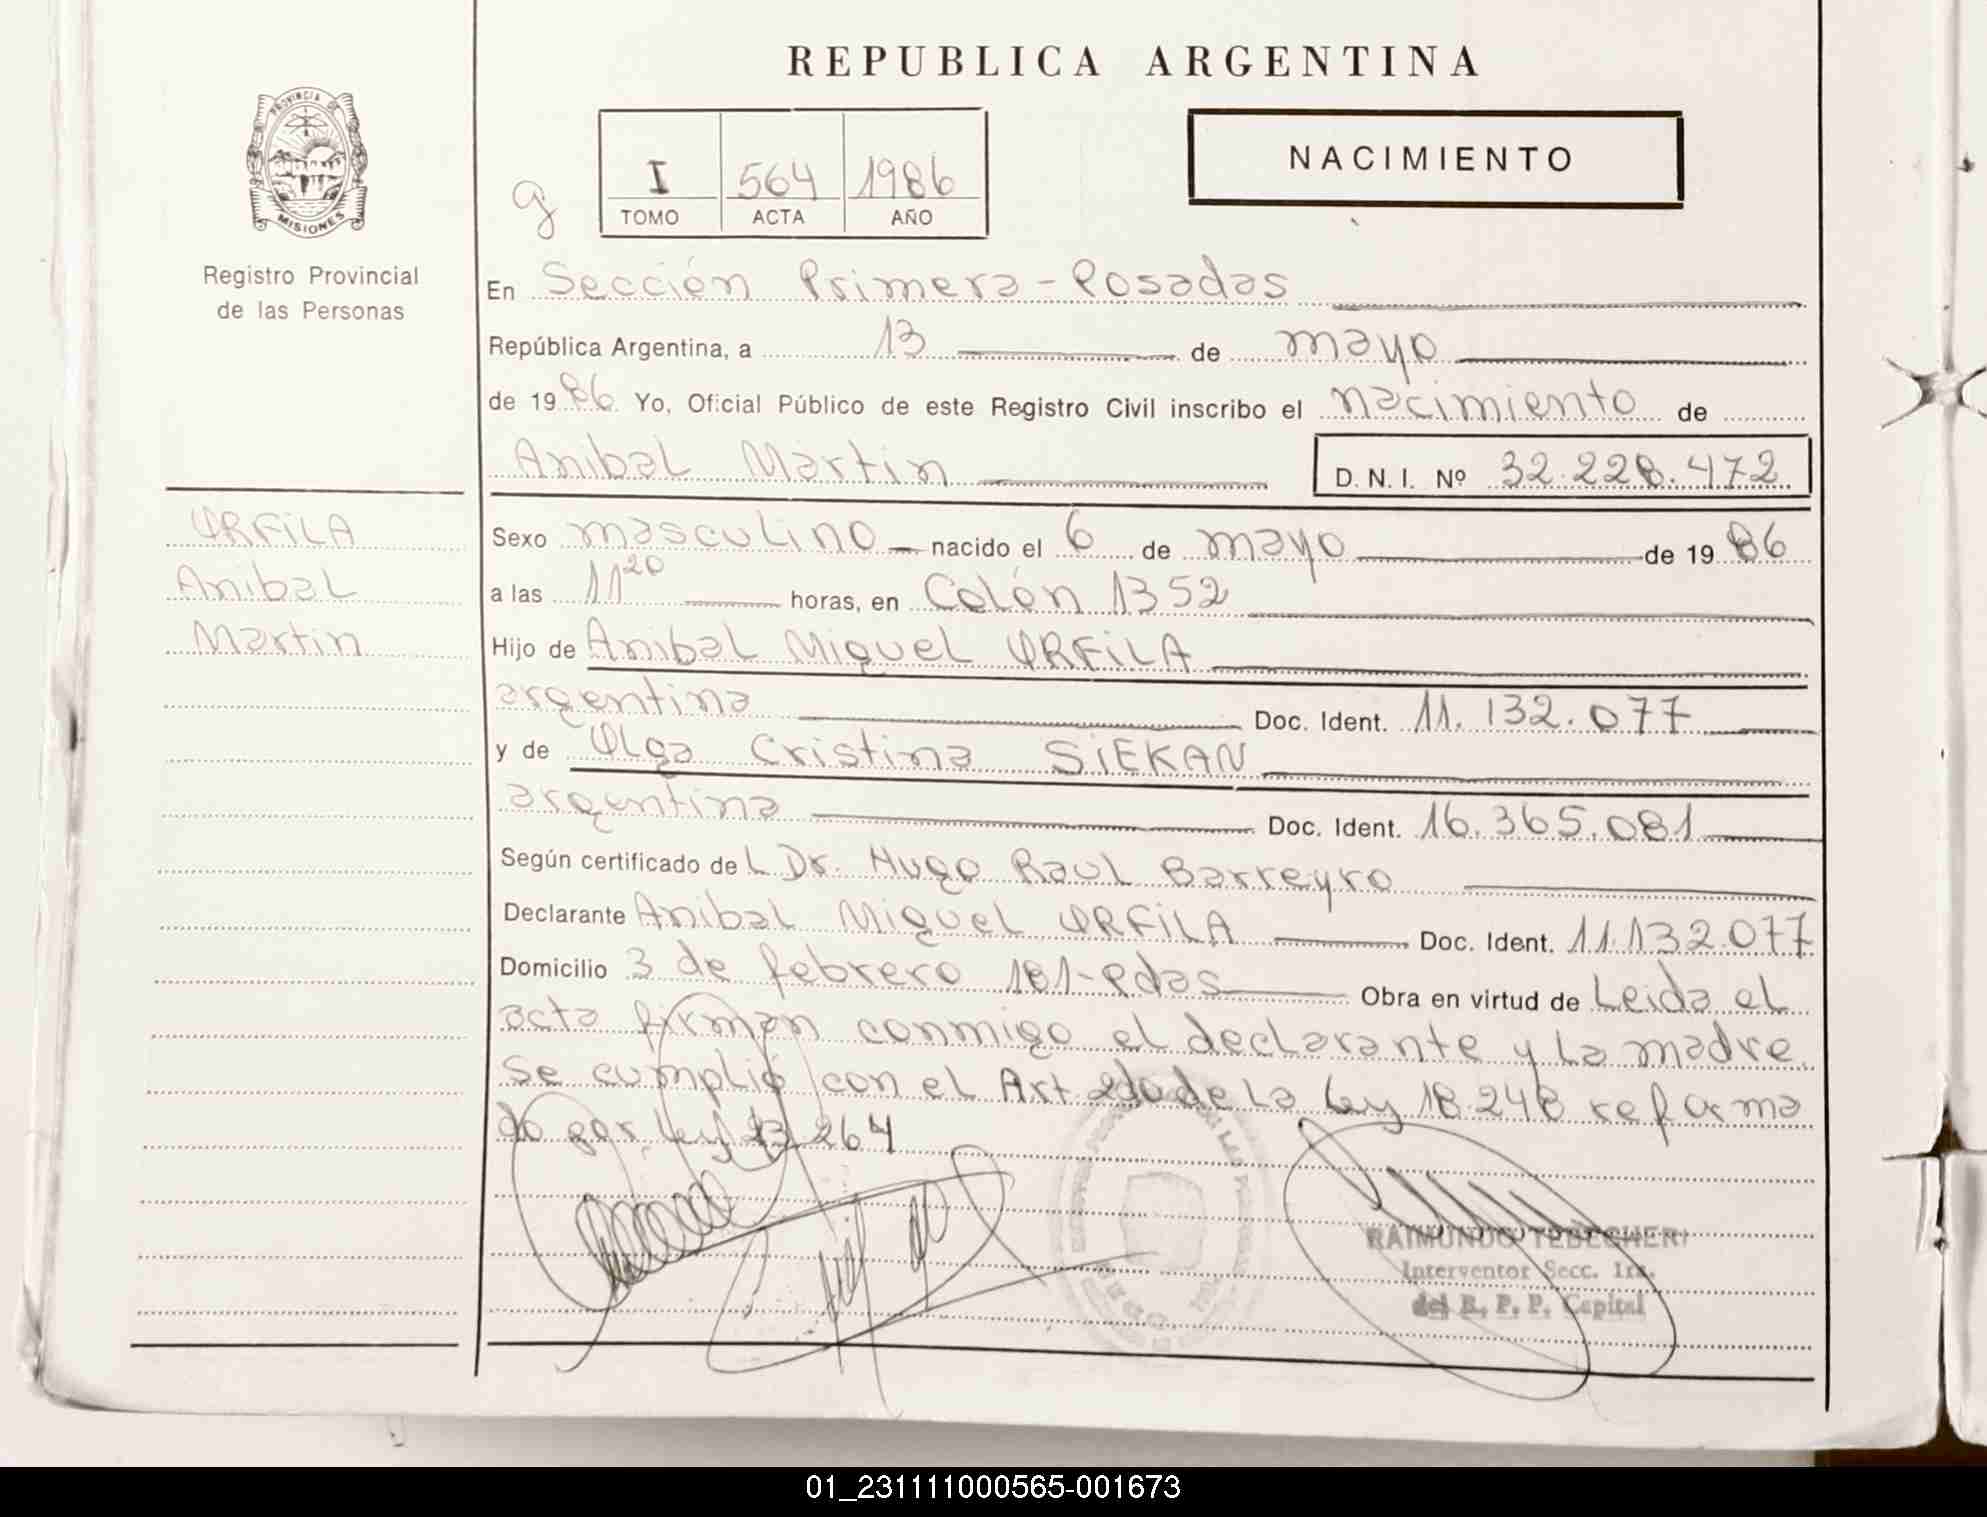 REPUBLICA ARGENTINA
PROVINCIA DE
MISIONES
Registro Provincial
de las Personas
g
I 564 1986
TOMO ACTA AÑO
NACIMIENTO
En Sección Primera - Posadas
República Argentina, a 13 de mayo
de 1986 Yo, Oficial Público de este Registro Civil inscribo el nacimiento de
Anibal Martin D. N. I. Nº 32.228.472
ORFiLA
Anibal
Martin
Sexo masculino nacido el 6 de mayo de 1986
a las 11 20 horas, en Colón 1352
Hijo de Anibal Miguel ORFiLA
argentina Doc. Ident. 11.132.077
y de Olga Cristina SiEKAN
argentina Doc. Ident. 16.365.081
Según certificado del Dr. Hugo Raul Barreyro
Declarante Anibal Miguel ORFiLA Doc. Ident. 11.132.077
Domicilio 3 de febrero 181-Pdas Obra en virtud de Leida el
acta firman conmigo el declarante y la madre.
Se cumplió con el Art 2do de la ley 18.248 reforma
do por ley 23.264
RAIMUNDO TEBECHERI
Interventor Secc. 1ra.
del R. P. P. Capital
01_231111000565-001673